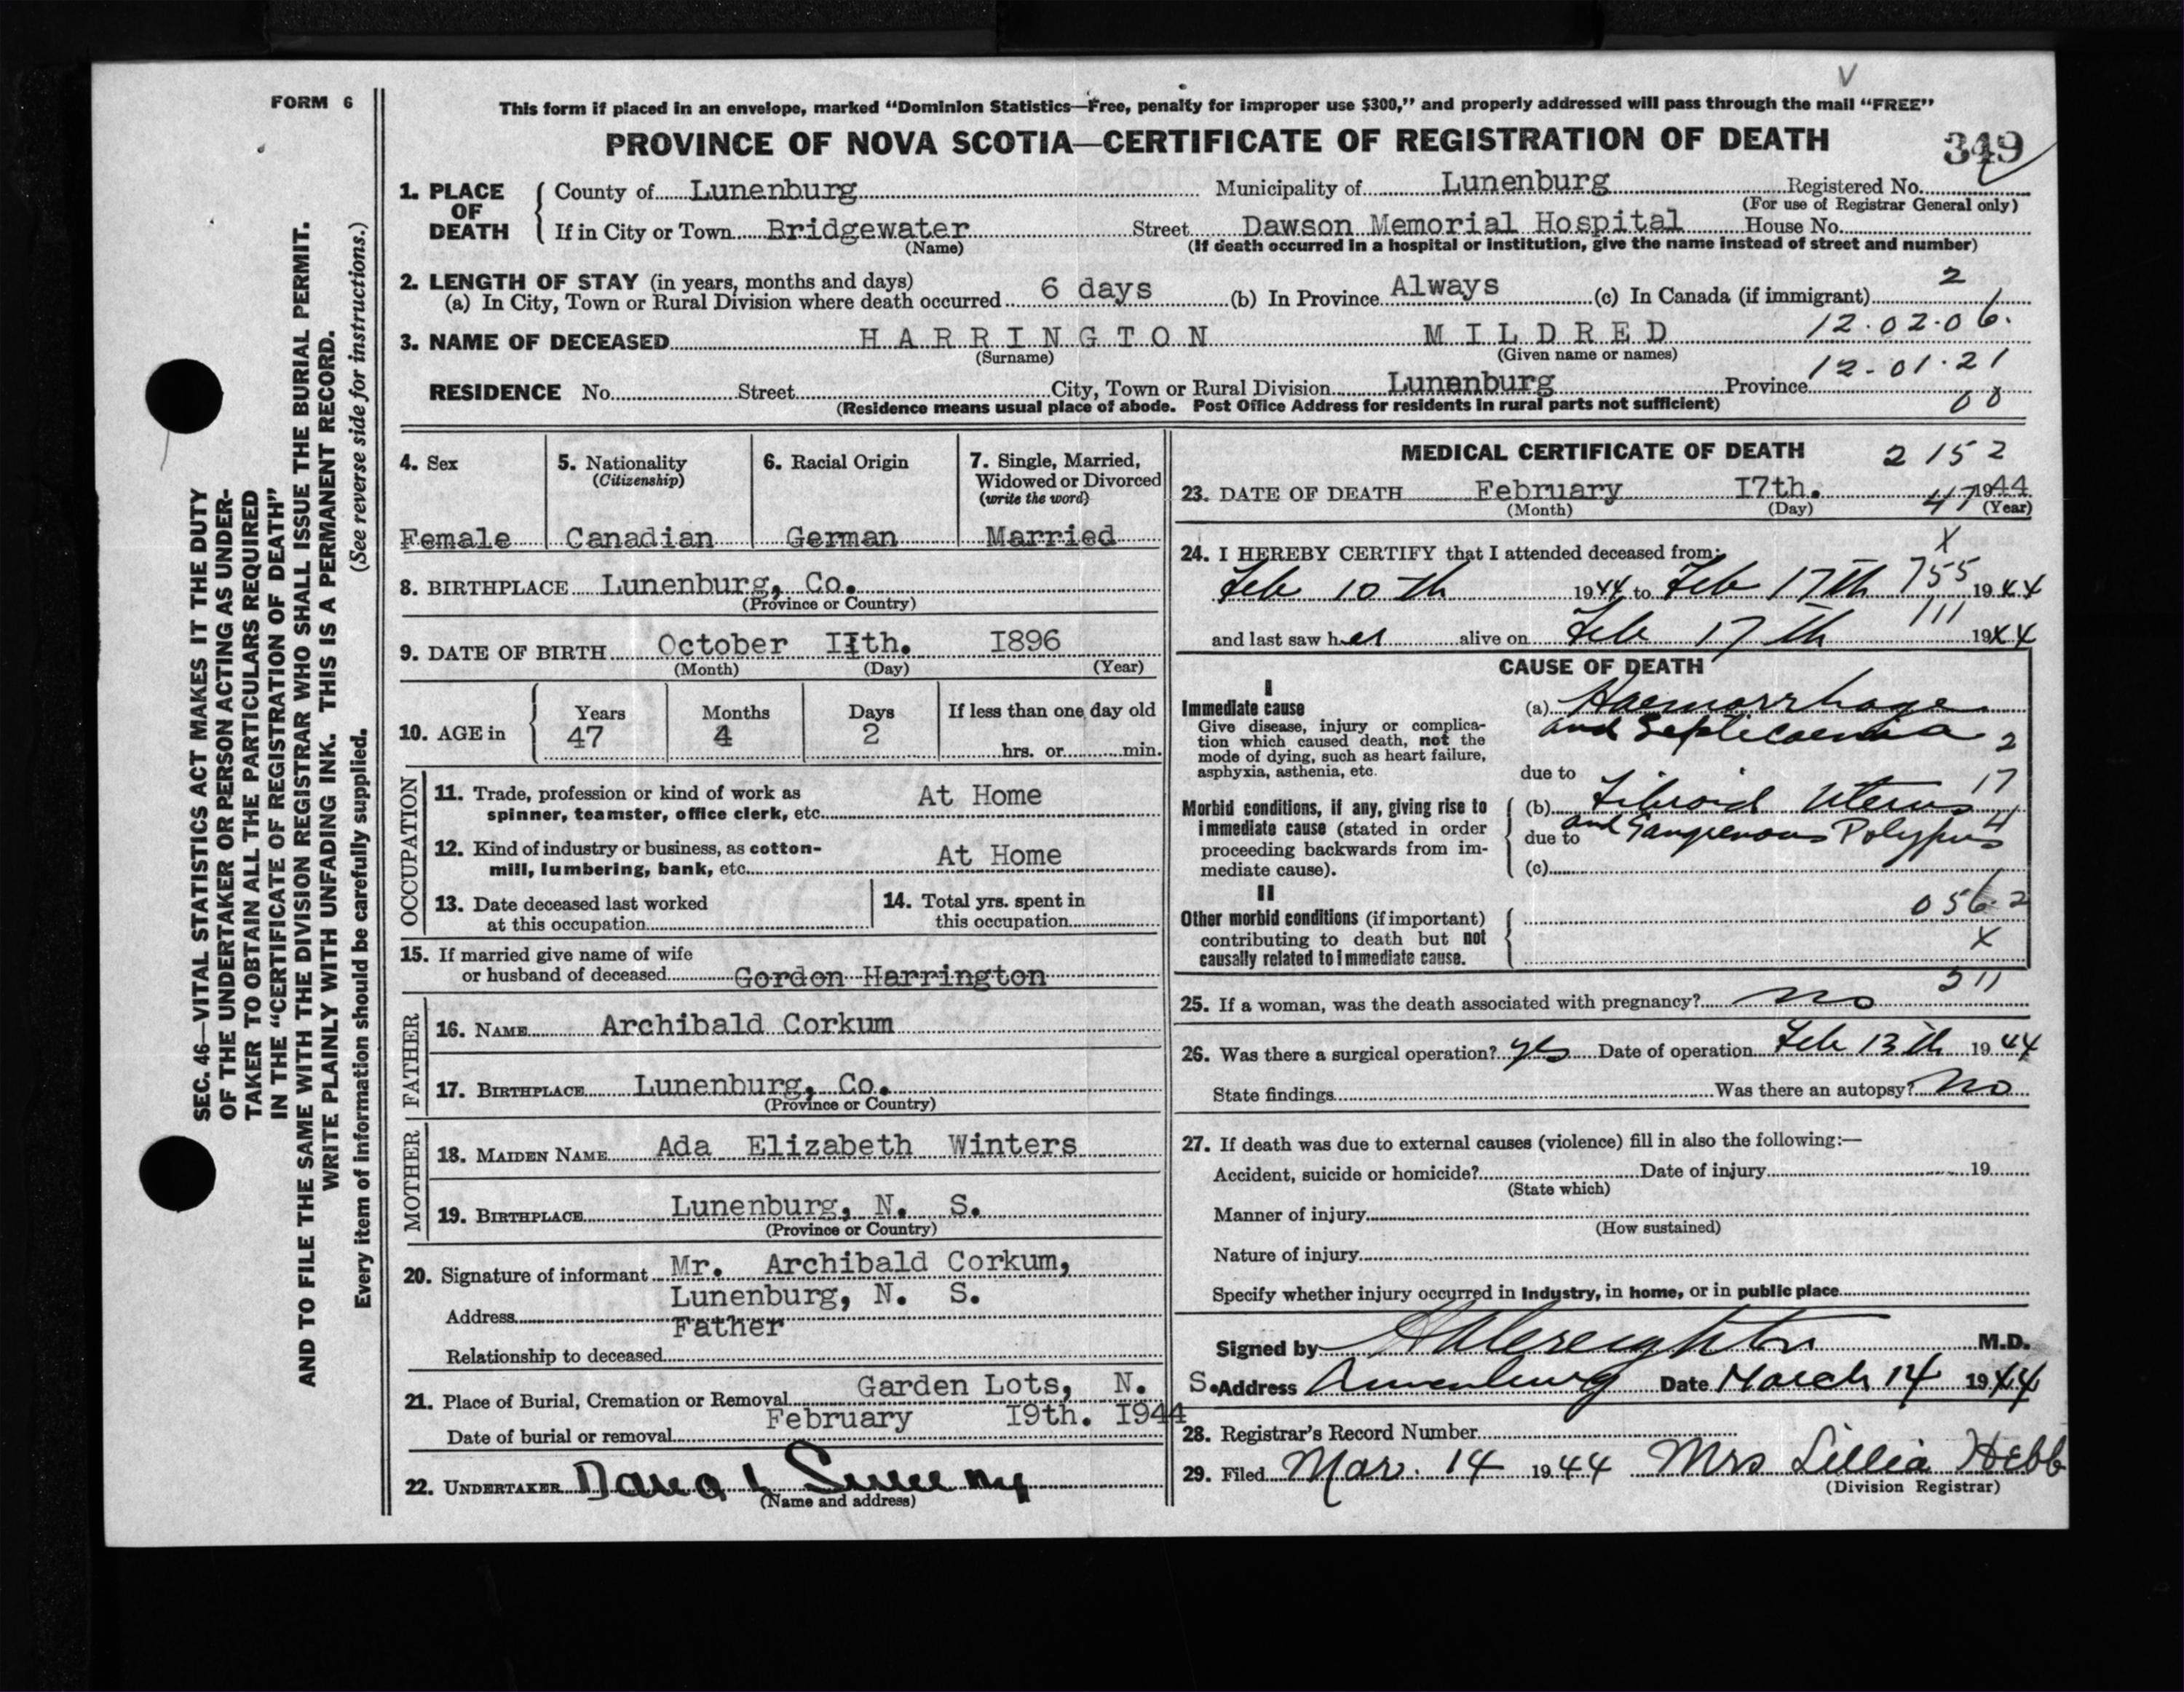 FORM 6
This form if placed in an envelope, marked “Dominion Statistics—Free, penalty for improper use $300,” and properly addressed will pass through the mail “FREE”
V
PROVINCE OF NOVA SCOTIA—CERTIFICATE OF REGISTRATION OF DEATH
349
1. PLACE OF DEATH
County of Lunenburg Municipality of Lunenburg Registered No.
(For use of Registrar General only)
If in City or Town Bridgewater Street Dawson Memorial Hospital House No.
(Name) (If death occurred in a hospital or institution, give the name instead of street and number)
2. LENGTH OF STAY (in years, months and days) 2
(a) In City, Town or Rural Division where death occurred 6 days (b) In Province Always (c) In Canada (if immigrant)
3. NAME OF DECEASED HARRINGTON MILDRED 12.02.06.
(Surname) (Given name or names)
12-01.21
RESIDENCE No. Street City, Town or Rural Division Lunenburg Province
(Residence means usual place of abode. Post Office Address for residents in rural parts not sufficient) 00
4. Sex
Female
5. Nationality
(Citizenship)
Canadian
6. Racial Origin
German
7. Single, Married,
Widowed or Divorced
(write the word)
Married
8. BIRTHPLACE Lunenburg, Co.
(Province or Country)
9. DATE OF BIRTH October IIth. I896
(Month) (Day) (Year)
10. AGE in
Years Months Days If less than one day old
47 4 2
hrs. or min.
OCCUPATION
11. Trade, profession or kind of work as
spinner, teamster, office clerk, etc. At Home
12. Kind of industry or business, as cotton-
mill, lumbering, bank, etc. At Home
13. Date deceased last worked
at this occupation
14. Total yrs. spent in
this occupation
15. If married give name of wife
or husband of deceased Gordon Harrington
FATHER
16. NAME Archibald Corkum
17. BIRTHPLACE Lunenburg, Co.
(Province or Country)
MOTHER
18. MAIDEN NAME Ada Elizabeth Winters
19. BIRTHPLACE Lunenburg, N. S.
(Province or Country)
20. Signature of informant Mr. Archibald Corkum,
Lunenburg, N. S.
Address
Father
Relationship to deceased
21. Place of Burial, Cremation or Removal Garden Lots, N. S.
Date of burial or removal February I9th. I944
22. UNDERTAKER
(Name and address)
MEDICAL CERTIFICATE OF DEATH 2152
23. DATE OF DEATH February I7th. 1944
(Month) (Day) (Year)
47
X
24. I HEREBY CERTIFY that I attended deceased from:
Feb 10th 1944 to Feb 17th 1944
755
111
and last saw her alive on Feb 17th 1944
CAUSE OF DEATH
I
Immediate cause
Give disease, injury or complica-
tion which caused death, not the
mode of dying, such as heart failure,
asphyxia, asthenia, etc.
(a) Haemorrhage
and Septicaemia 2
due to
17
Morbid conditions, if any, giving rise to
immediate cause (stated in order
proceeding backwards from im-
mediate cause).
(b) Fibroid Uterus
4
due to and Gangrenous Polypus
(c)
II
Other morbid conditions (if important)
contributing to death but not
causally related to immediate cause.
056.2
X
511
25. If a woman, was the death associated with pregnancy? no
26. Was there a surgical operation? yes Date of operation Feb 13th 1944
State findings Was there an autopsy? No
27. If death was due to external causes (violence) fill in also the following:—
Accident, suicide or homicide? Date of injury 19
(State which)
Manner of injury
(How sustained)
Nature of injury
Specify whether injury occurred in Industry, in home, or in public place
Signed by Creighton M.D.
Address Lunenburg Date March 14 1944
28. Registrar's Record Number
29. Filed Mar. 14 1944 Mrs Lillia Hebb
(Division Registrar)
SEC. 46—VITAL STATISTICS ACT MAKES IT THE DUTY
OF THE UNDERTAKER OR PERSON ACTING AS UNDER-
TAKER TO OBTAIN ALL THE PARTICULARS REQUIRED
IN THE “CERTIFICATE OF REGISTRATION OF DEATH”
AND TO FILE THE SAME WITH THE DIVISION REGISTRAR WHO SHALL ISSUE THE BURIAL PERMIT.
WRITE PLAINLY WITH UNFADING INK. THIS IS A PERMANENT RECORD.
Every item of information should be carefully supplied. (See reverse side for instructions.)